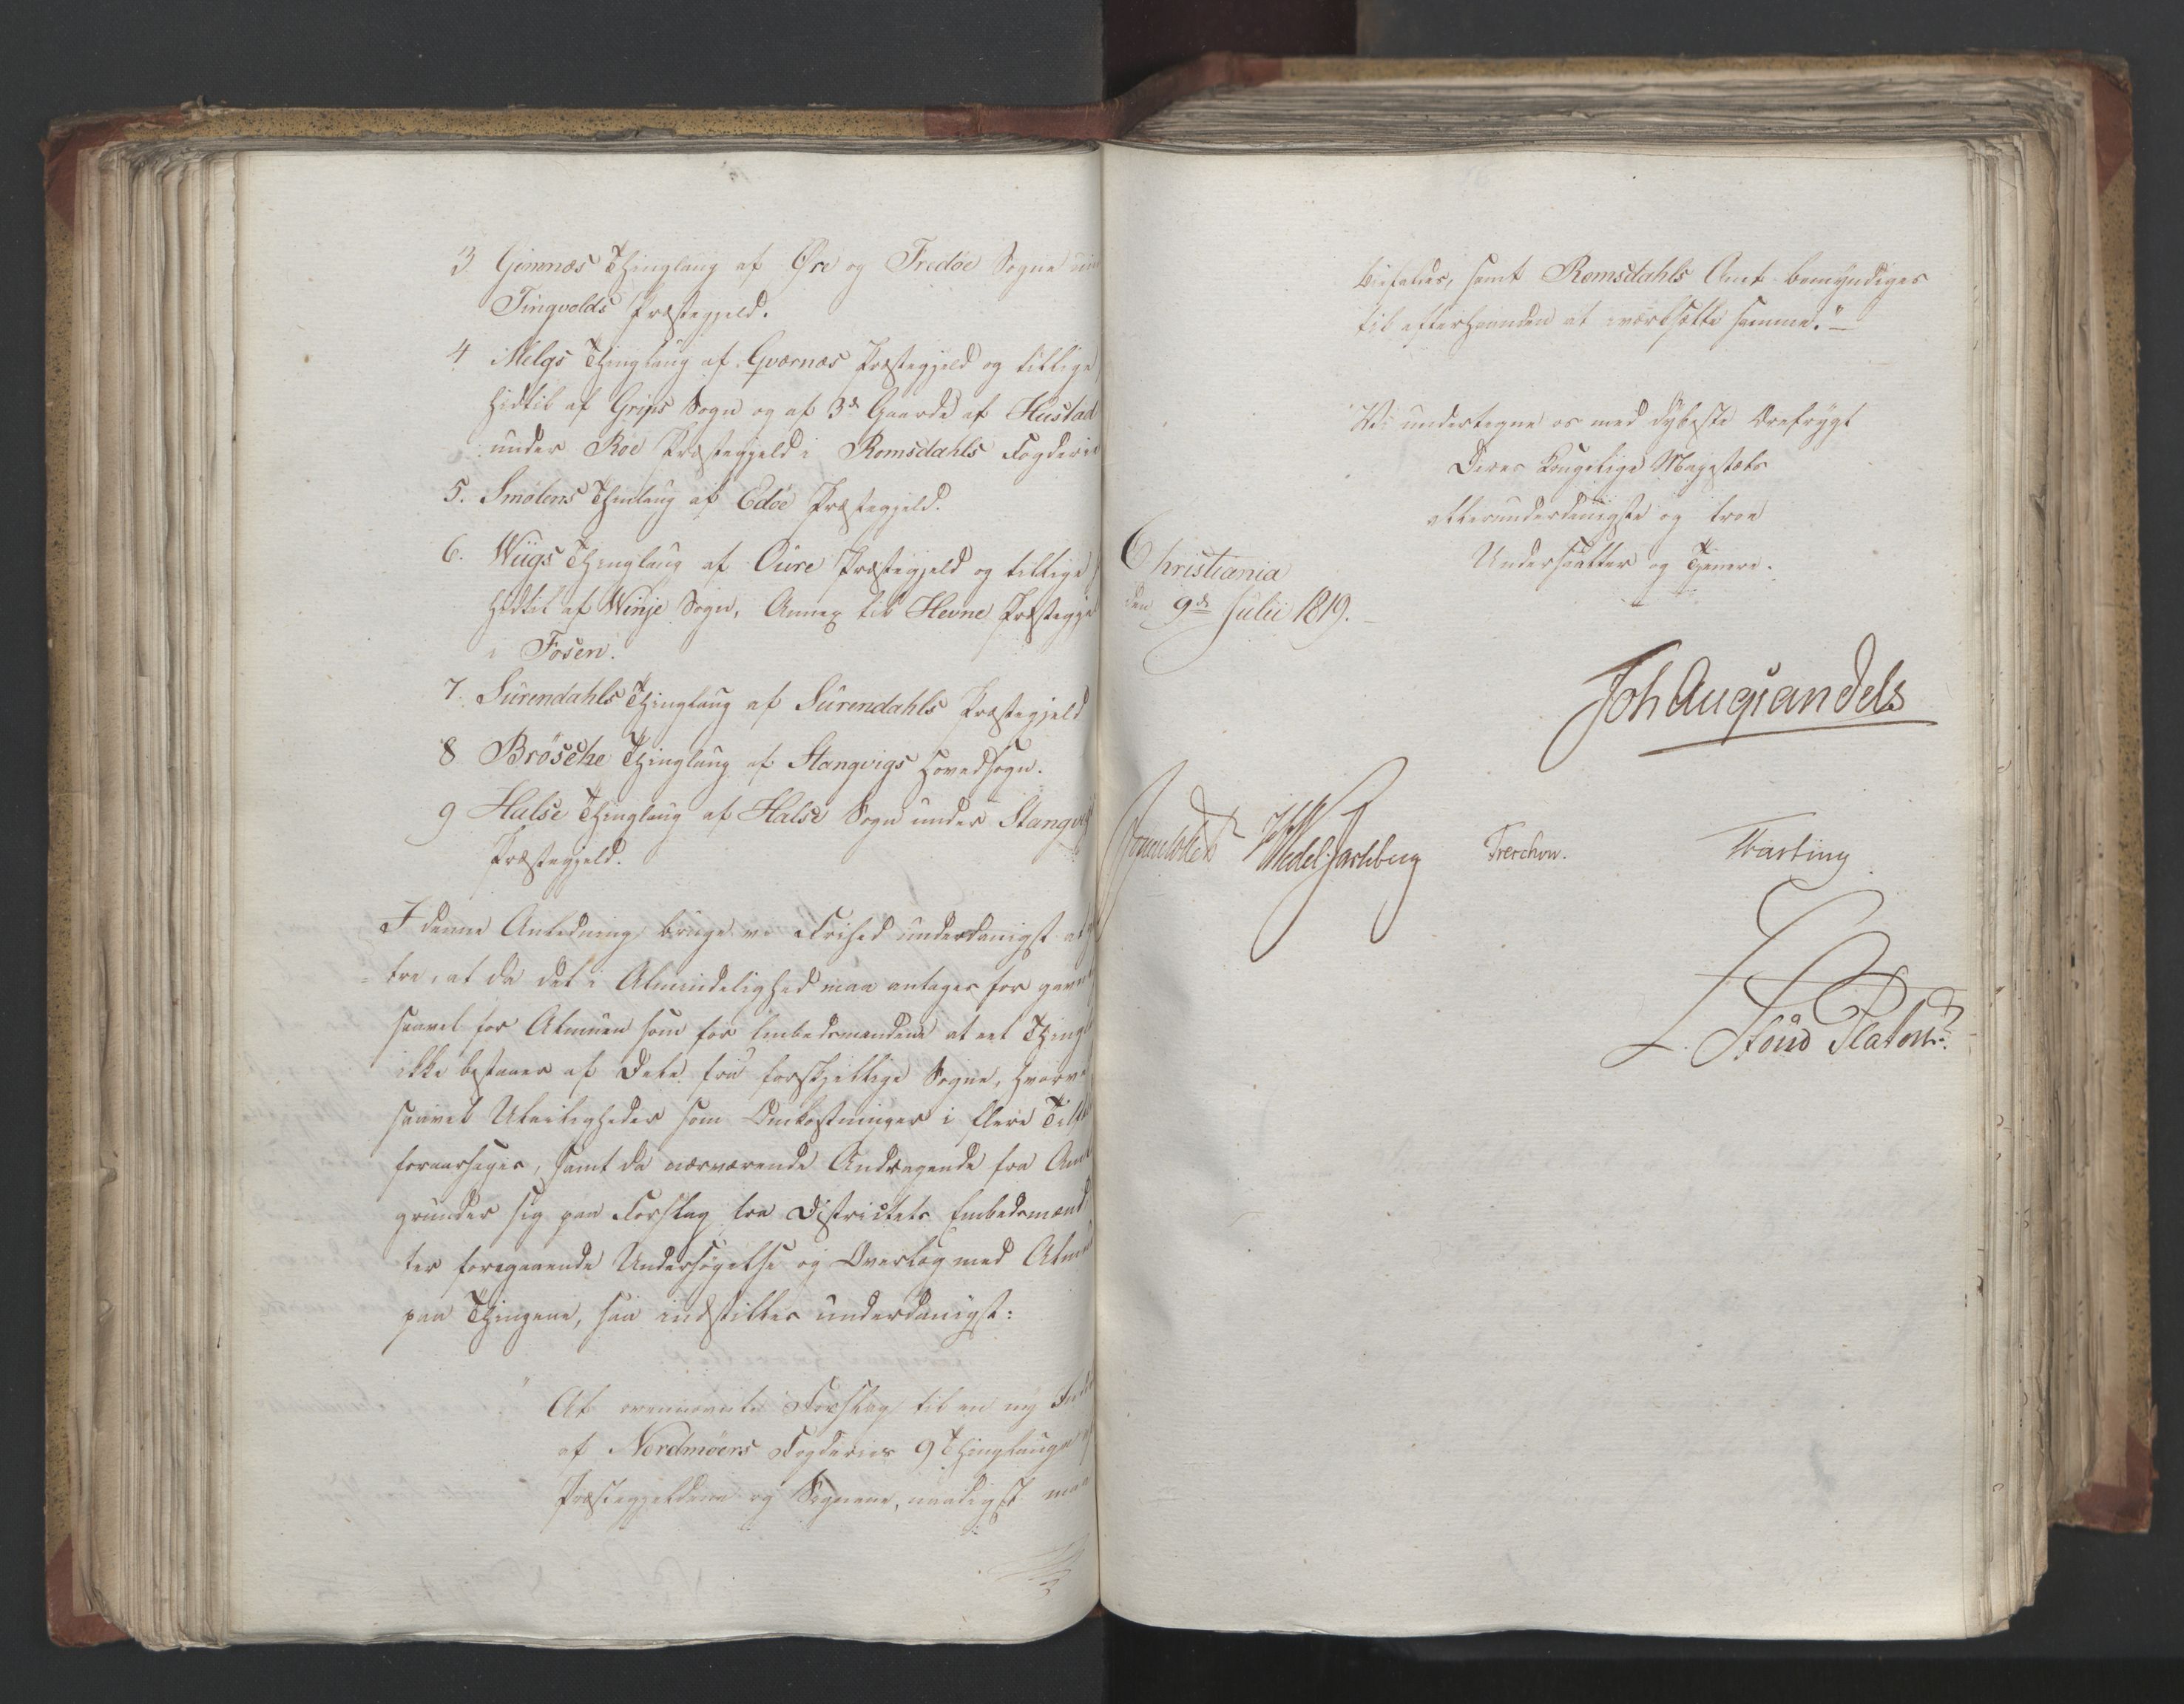 3. Gimnæs Thinglaug af Øre og Fredøe Sogne un
Tingvolds Præstegjeld.
4 Melgs Thinglaug af Gværnæs Præstegjeld og tillige
hidtil af Grips Sogn og af 3de Gaarde af Hustad
under Böe Præstegjeld i Romsdahls Fogderie
5. Smølens Thinlaug af Edöe Præstegjeld.
6. Wiigs Thinglaug af Oure Præstegjeld og tillige
hidtil af Winje Sogn, Annex til Hevne Præstegje
i Fosen.
7. Surendahls Thinglaug af Surendahls Præstegjeld
8 Brøsche Thinglaug af Stangvigs Hovedsogn.
9 Halse Thinglaug af Halse Sogn under Stangvig
Præstegjeld.
I denne Anledning bruge vi Frihed underdanigst at
tre, at da det i Almindelighed maa antages for gavn
saavel for Almuen som for Embedsmændene at eet Thingl
ikke bestaaer af Dele fra forskjellige Sogne, hvorve
saavel Uleiligheder som Omkostninger i flere Tilfæ
foraarsages, samt da nærværende Andragende fra Amt
grunder sig paa Forslag fra Districtets Embedsmænd
ter foregaaende Undersøgelse og Overlæg med Almu
paa Thingene, saa indstilles underdanigst:
"At ovennævnte Forslag til en ny Ind
af Nordmøers Fogderies 9 Thinglauge
Præstegjeldene og Sognene, naadigst maa
bifaldes, samt Romsdahls Amt bemyndiges
til efterhaanden at iværksætte samme."
Vi undertegne os med dybeste Ærefrygt
Deres Kongelige Majestæts
allerunderdanigste og troe
Undersaatter og Tjenere.
Christiania
den 9de Julii 1819.
Joh Aug Sandels
Sommerhielm Wedel-Jarlsberg Treschow. Fasting
L. Stoud Platou